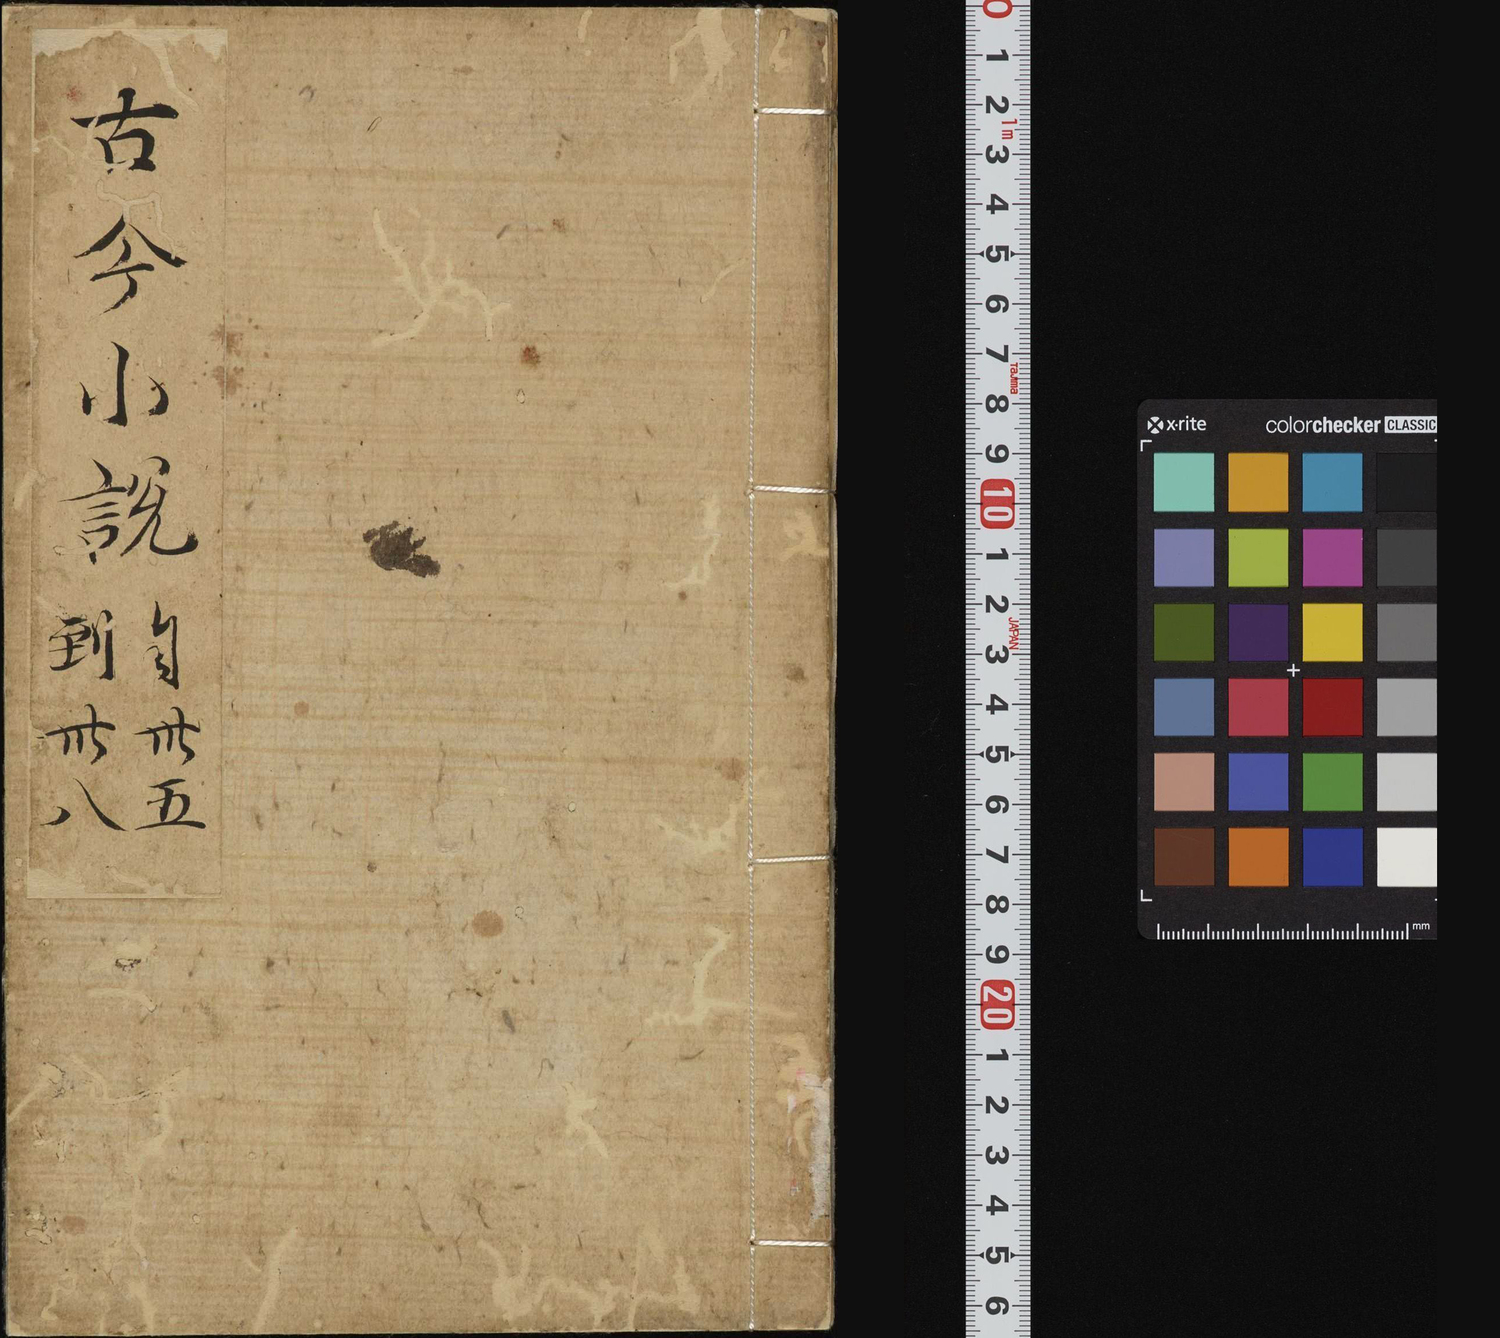 古今小説
自卅五
到卅八
0
1
2
1m
3
4
5
6
7
Tajima
8
9
10
1
2
JAPAN
3
4
5
6
7
8
9
20
1
2
3
4
5
6
x-rite
colorchecker CLASSIC
mm